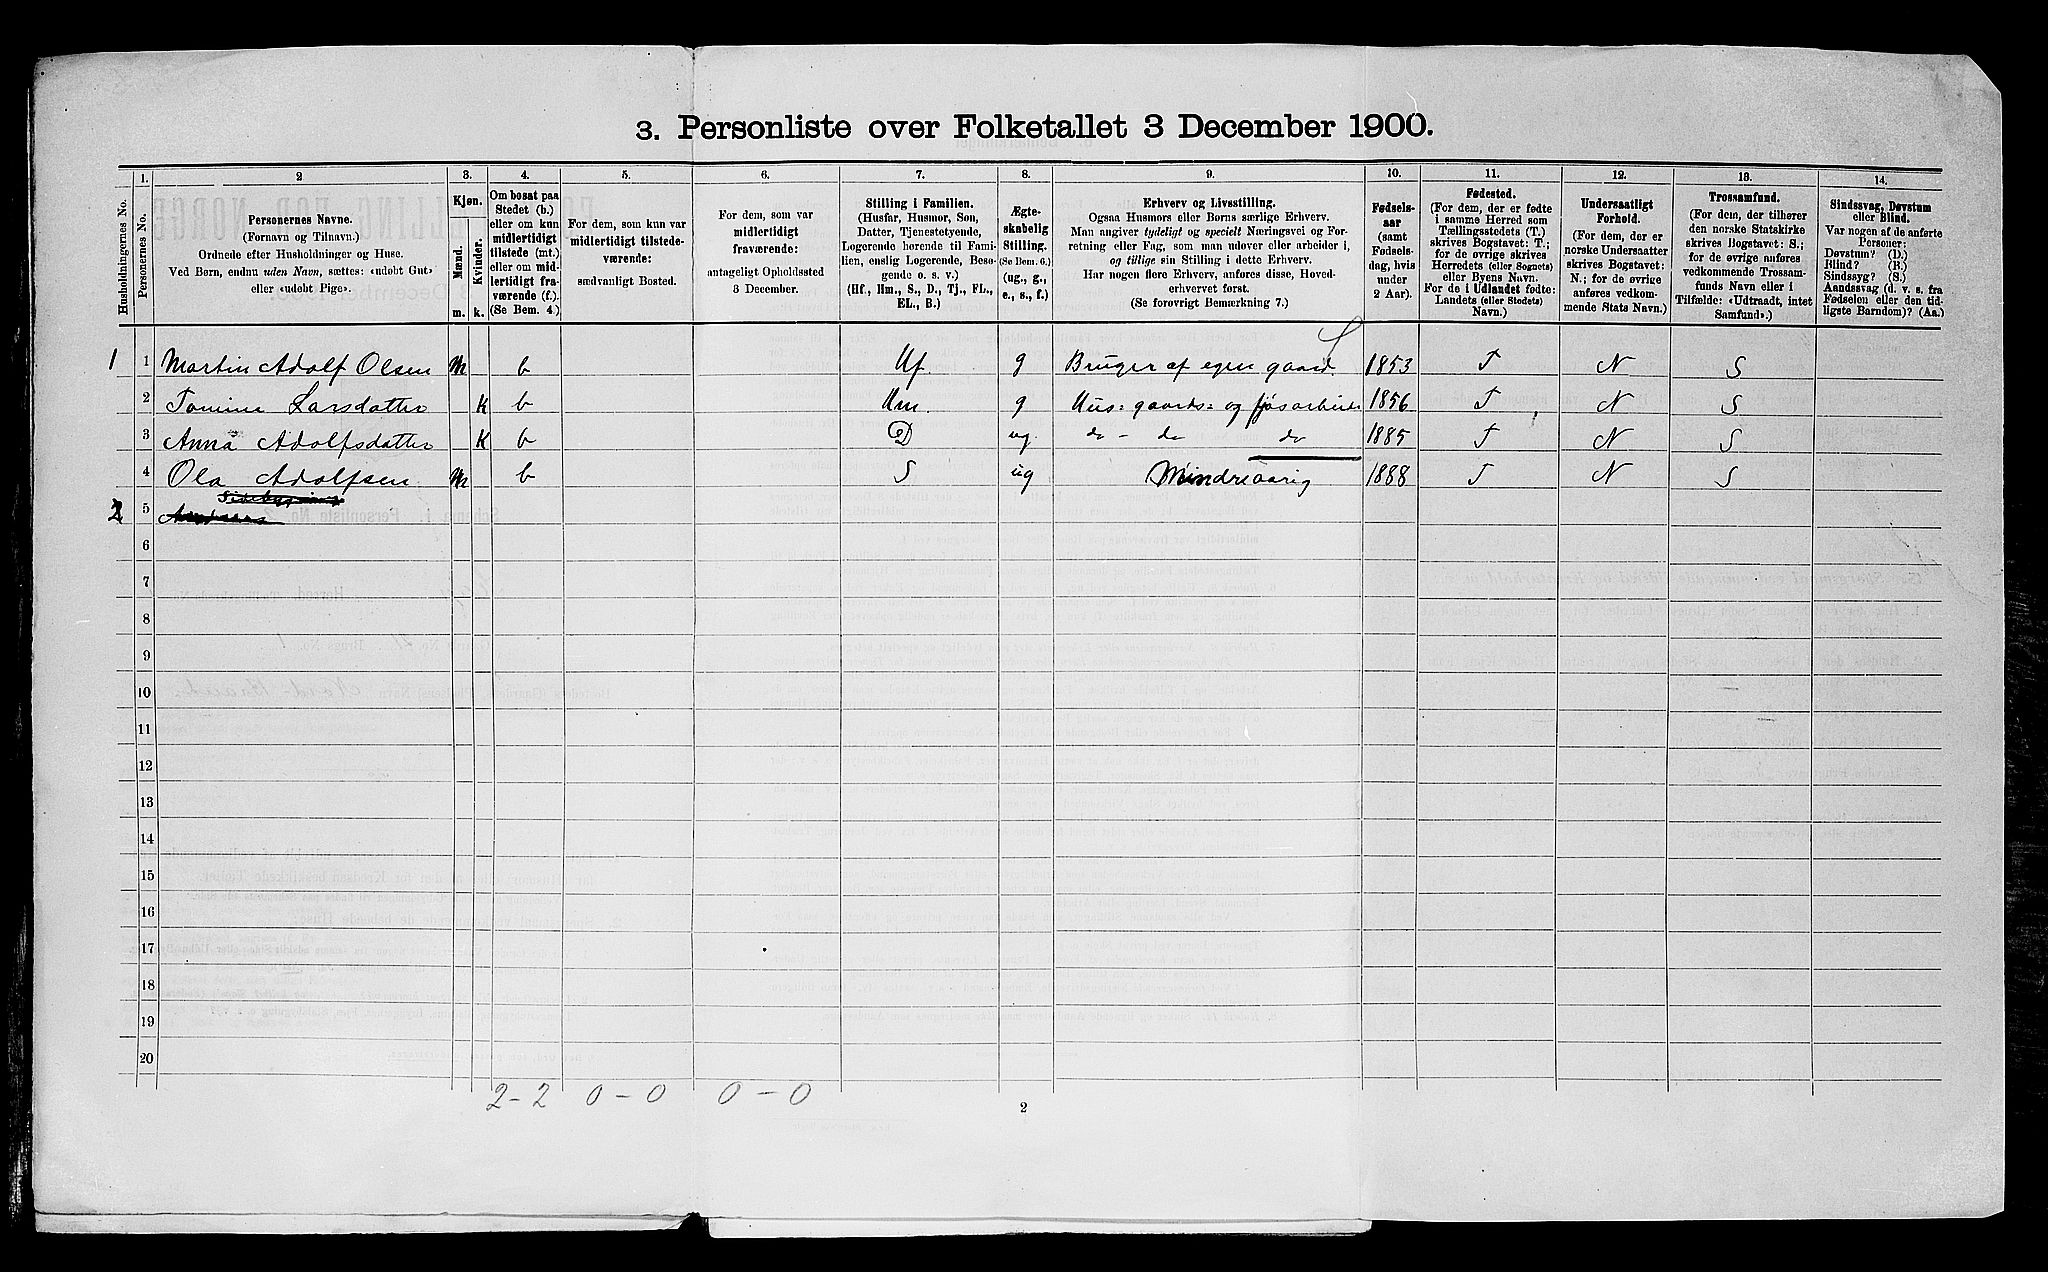 3. Personliste over Folketallet 3 December 1900.
Husholdningernes No.
1.
Personernes No.
2
Personernes Navne.
(Fornavn og Tilnavn.)
Ordnede efter Husholdninger og Huse.
Ved Børn, endnu uden Navn, sættes: «udøbt Gut»
eller «udøbt Pige».
3.
Kjøn.
Mænd.
Kvinder.
m. k.
4.
Om bosat paa
Stedet (b.)
eller om kun
midlertidigt
tilstede (mt.)
eller om mid-
lertidigt fra-
værende (f.).
(Se Bem. 4.)
5.
For dem, som kun var
midlertidigt tilstede-
værende:
sædvanligt Bosted.
6.
For dem, som var
midlertidigt
fraværende:
antageligt Opholdssted
3 December.
7.
Stilling i Familien.
(Husfar, Husmor, Søn,
Datter, Tjenestetyende,
Logerende hørende til Fami-
lien, enslig Logerende, Besø-
gende o. s. v.)
(Hf., Hm., S., D., Tj., FL.,
EL., B.)
8.
Ægte-
skabelig
Stilling.
(Se Bem. 6.)
(ug., g.,
e., s., f.)
9.
Erhverv og Livsstilling.
Ogsaa Husmors eller Børns særlige Erhverv.
Man angiver tydeligt og specielt Næringsvei og For-
retning eller Fag, som man udøver eller arbeider i,
og tillige sin Stilling i dette Erhverv.
Har nogen flere Erhverv, anføres disse, Hoved-
erhvervet først.
(Se forøvrigt Bemærkning 7.)
10.
Fødsels-
aar
(samt
Fødsels-
dag, hvis
under
2 Aar).
11.
Fødested.
(For dem, der er fødte
i samme Herred som
Tællingsstedets (T.)
skrives Bogstavet: T.;
for de øvrige skrives
Herredets (eller Sognets)
eller Byens Navn.
For de i Udlandet fødte:
Landets (eller Stedets)
Navn.)
12.
Undersaatligt
Forhold.
(For dem, der er
norske Undersaatter
skrives Bogstavet:
N.; for de øvrige
anføres vedkom-
mende Stats Navn.)
13.
Trossamfund.
(For dem, der tilhører
den norske Statskirke
skrives Bogstavet: S.;
for de øvrige anføres
vedkommende Trossam-
funds Navn eller i
Tilfælde: «Udtraadt, intet
Samfund».)
14.
Sindssvag, Døvstum
eller Blind.
Var nogen af de anførte
Personer:
Døvstum? (D.)
Blind? (B.)
Sindssyg? (S.)
Aandssvag (d. v. s. fra
Fødselen eller den tid-
ligste Barndom)? (Aa.)
1 1 Martin Adolf Olsen m b Hf g Bruger af egen gaard 1853 T N S
2 Tomine Larsdatter K b Hm. g Hus= gaards= og fjøsarbeide 1856 T N S
3 Anna Adolfsdatter K b D ug. do - do do 1885 T N S
4 Ola Adolfsen m b S ug Mindreaarig 1888 T N S
2 5
6
7
8
9
10
11
12
13
14
15
16
17
18
19
20
2 - 2 0 - 0 0 - 0
2